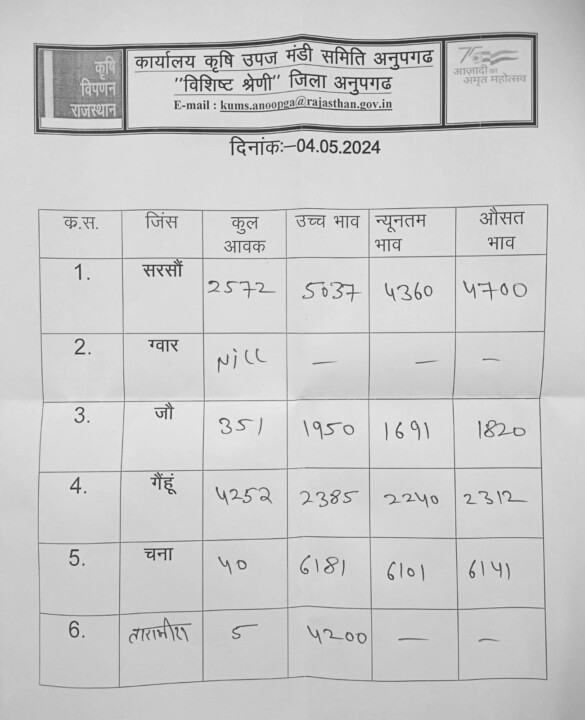 कृषि
विपणन
राजस्थान
कार्यालय कृषि उपज मंडी समिति अनुपगढ
"विशिष्ट श्रेणी" जिला अनुपगढ
E-mail : kums.anoopga@rajasthan.gov.in
75
आज़ादी का
अमृत महोत्सव
दिनांकः–04.05.2024
क.स. जिंस कुल आवक उच्च भाव न्यूनतम भाव औसत भाव
1. सरसौं 2572 5037 4360 4700
2. ग्वार Nill — — —
3. जौ 351 1950 1691 1820
4. गैंहूं 4252 2385 2240 2312
5. चना 40 6181 6101 6141
6. तारामीरा 5 4200 — —